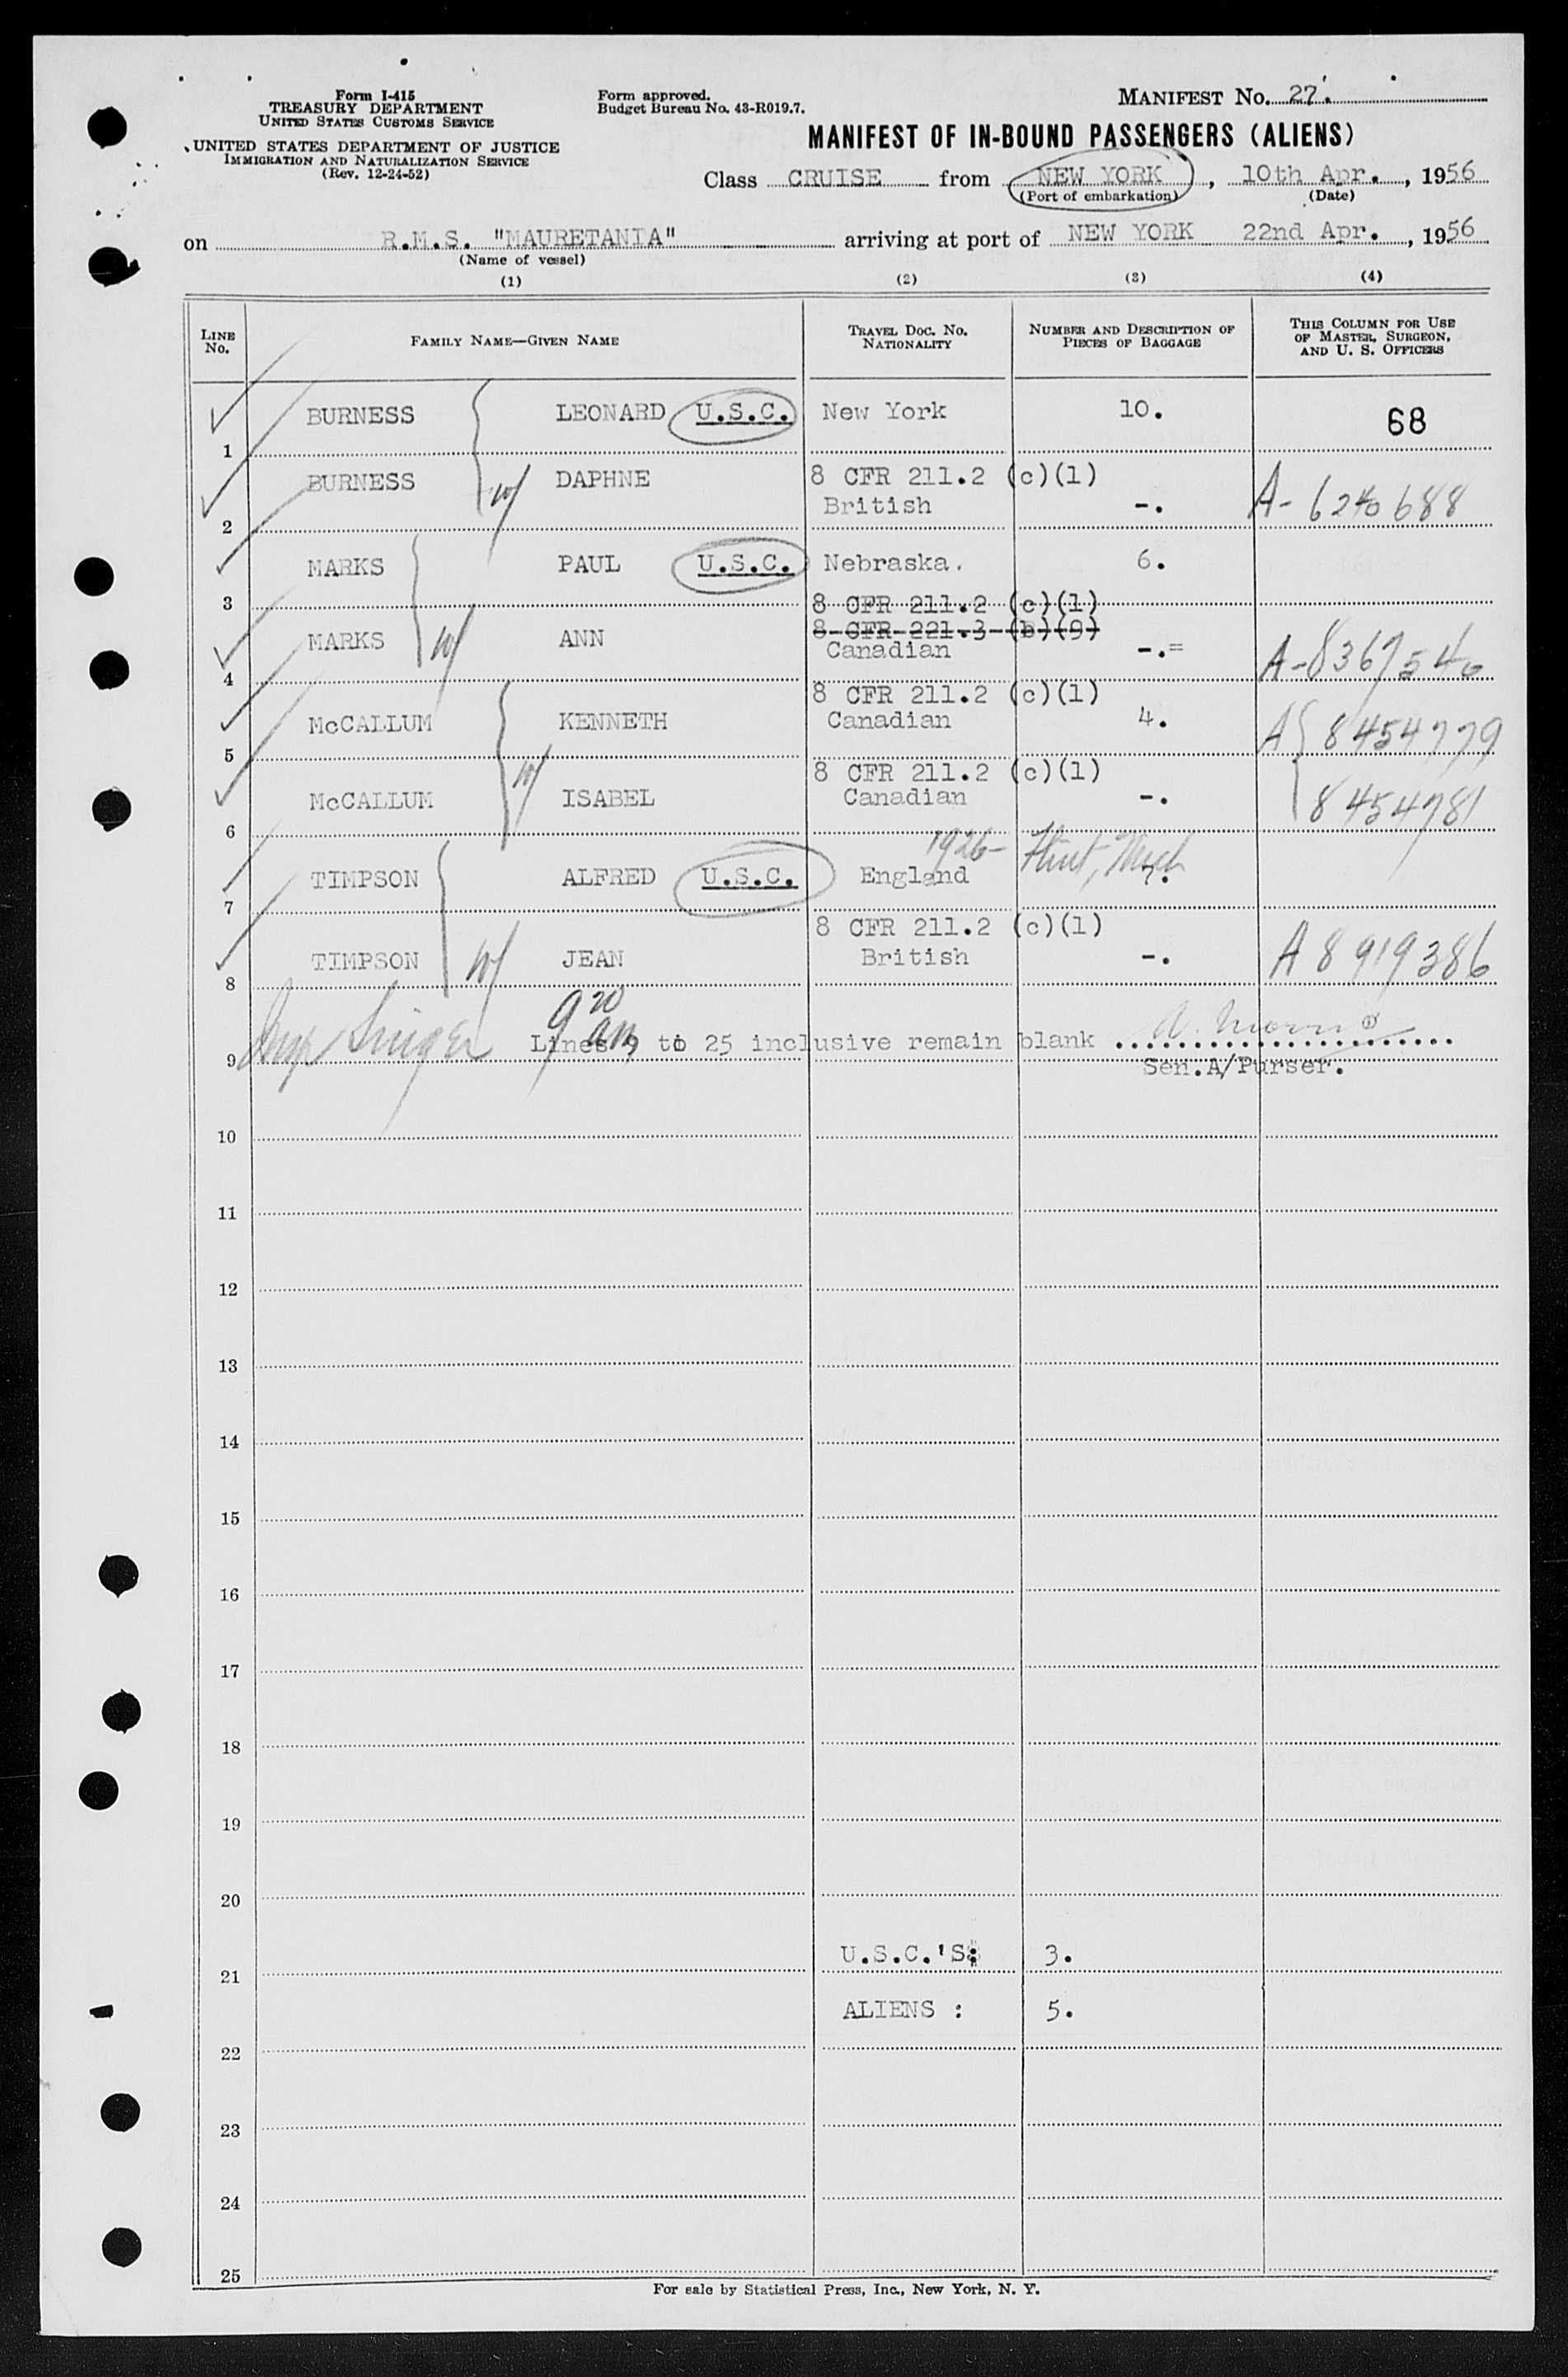 Form I-415
TREASURY DEPARTMENT
UNITED STATES CUSTOMS SERVICE
UNITED STATES DEPARTMENT OF JUSTICE
IMMIGRATION AND NATURALIZATION SERVICE
(Rev. 12-24-52)
Form approved.
Budget Bureau No. 43-R019.7.
MANIFEST NO. 27.
MANIFEST OF IN-BOUND PASSENGERS (ALIENS)
Class CRUISE from NEW YORK, 10th Apr., 1956
(Port of embarkation) (Date)
on R.M.S. "MAURETANIA" arriving at port of NEW YORK 22nd Apr., 1956
(Name of vessel)
(1) (2) (3) (4)
LINE NO. FAMILY NAME—GIVEN NAME TRAVEL DOC. NO. NATIONALITY NUMBER AND DESCRIPTION OF PIECES OF BAGGAGE THIS COLUMN FOR USE OF MASTER, SURGEON, AND U. S. OFFICERS
1 BURNESS LEONARD U.S.C. New York 10. 68
8 CFR 211.2 (c)(1)
2 BURNESS w/ DAPHNE British -. A-6240688
3 MARKS PAUL U.S.C. Nebraska. 6.
8 CFR 211.2 (c)(1)
8 CFR 221.3 (b)(9)
4 MARKS w/ ANN Canadian -.= A-8367540
8 CFR 211.2 (c)(1)
5 McCALLUM KENNETH Canadian 4. A 8454779
8 CFR 211.2 (c)(1)
6 McCALLUM w/ ISABEL Canadian -. 8454781
1926- Flint, Mich
7 TIMPSON ALFRED U.S.C. England 7.
8 CFR 211.2 (c)(1)
8 TIMPSON w/ JEAN British -. A 8919386
9 20 am
9 Insp Singer Lines 9 to 25 inclusive remain blank ......................
Sen.A/Purser.
10
11
12
13
14
15
16
17
18
19
20
21 U.S.C.'S: 3.
22 ALIENS : 5.
23
24
25
For sale by Statistical Press, Inc., New York, N. Y.